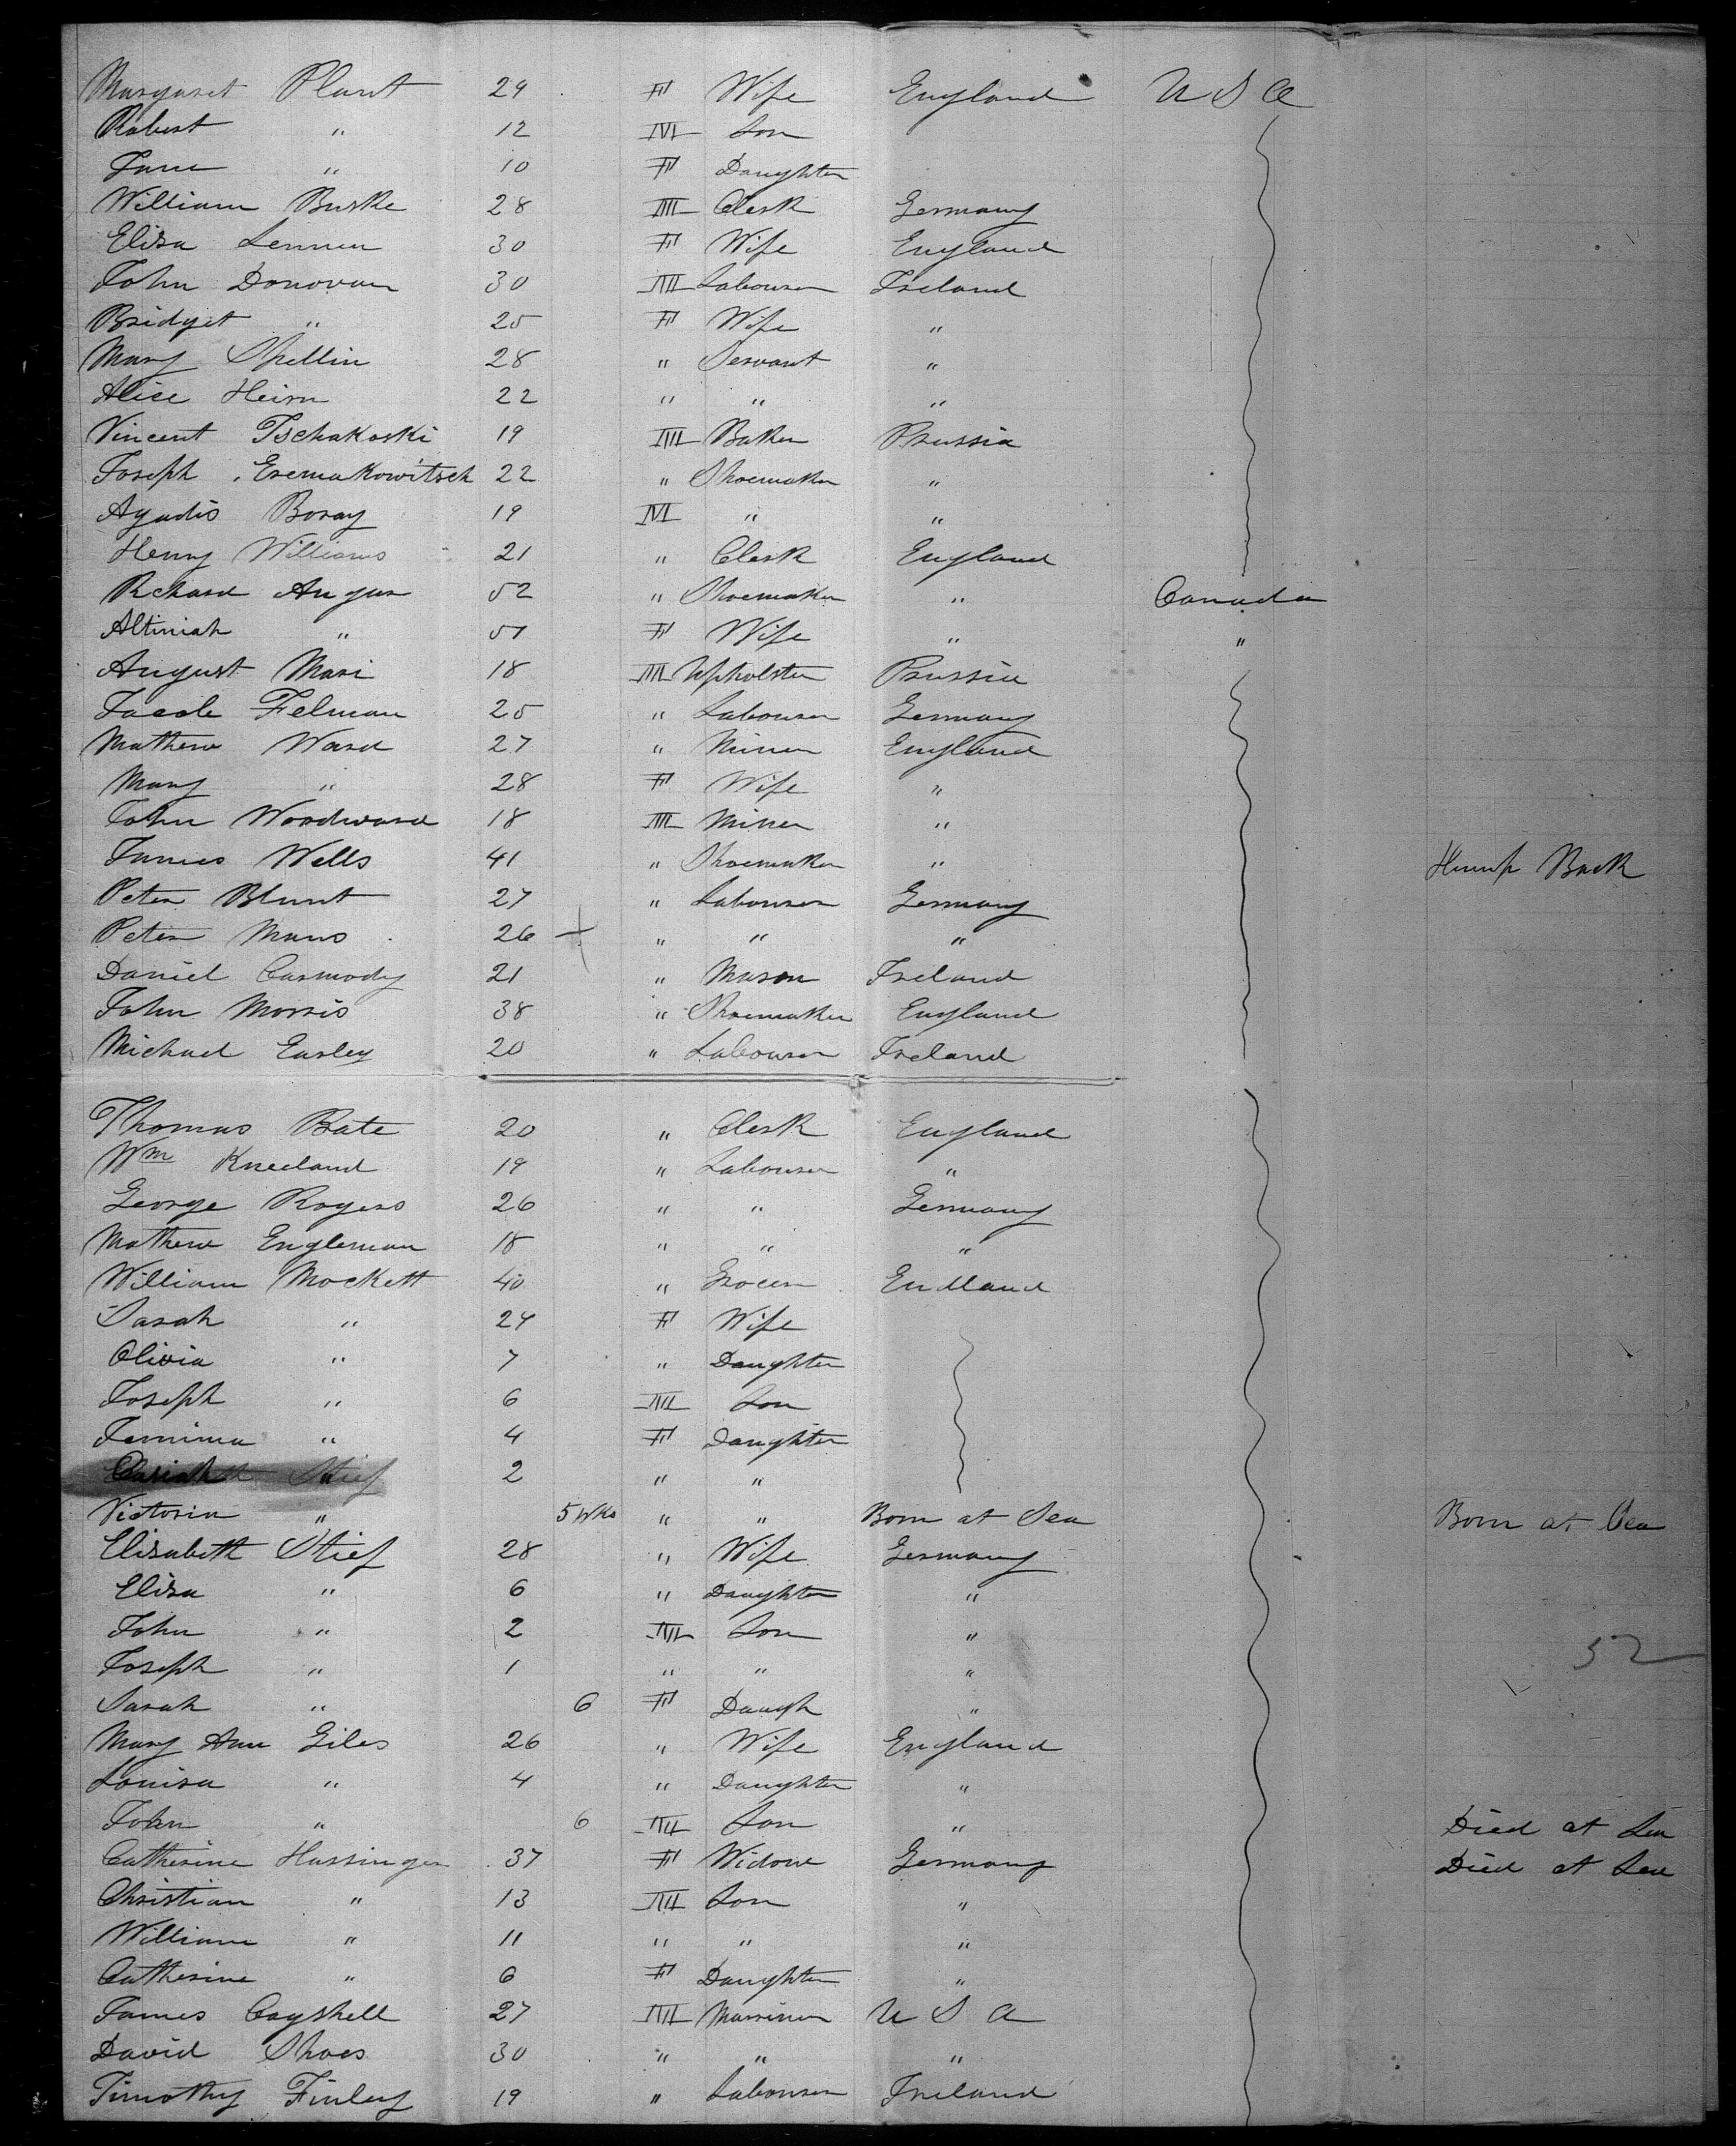 Margaret Plant 29 F Wife England U S A
Robert " 12 M Son
Jane " 10 F Daughter
William Burke 28 M Clerk Germany
Eliza Lennen 30 F Wife England
John Donovan 30 M Labourer Ireland
Bridget " 25 F Wife "
Mary Spellin 28 " Servant "
Alice Heirn 22 " " "
Vincent Tschakoski 19 M Baker Prussia
Joseph Eremakowitsch 22 " Shoemaker "
Agadis Boray 19 M " "
Henry Williams 21 " Clerk England
Richard Angus 52 " Shoemaker " Canada
Altiniah " 51 F Wife " "
August Mari 18 M Upholster Prussia
Jacob Felman 25 " Labourer Germany
Mathew Ward 27 " Miner England
Mary " 28 F Wife "
John Woodward 18 M Miner "
James Wells 41 " Shoemaker " Hump Back
Peter Blunt 27 " Labourer Germany
Peter Mans 26 + " " "
Daniel Carmody 21 " Mason Ireland
John Morris 38 " Shoemaker England
Michael Earley 20 " Labourer Ireland
Thomas Bate 20 " Clerk England
Wm Kneeland 19 " Labourer "
George Rogers 26 " " Germany
Mathew Engleman 18 " " "
William Mockett 40 " Grocer Endland
Sarah " 24 F Wife
Olivia " 7 " Daughter
Joseph " 6 M Son
Jemima " 4 F Daughter
" 2 " "
Victoria " 5 Wks " " Born at Sea Born at Sea
Elisabeth Stief 28 " Wife Germany
Eliza " 6 " Daughter "
John " 2 M Son "
Joseph " 1 " " "
52
Sarah " 6 F Daugh "
Mary Ann Giles 26 " Wife England
Louisa " 4 " Daughter "
John " 6 M Son " Died at Sea
Catherine Hassinger 37 F Widow Germany Died at Sea
Christian " 13 M Son "
William " 11 " " "
Catherine " 6 F Daughter "
James Cogshell 27 M Marriner U S A
David Shoes 30 " " "
Timothy Finley 19 " Labourer Ireland